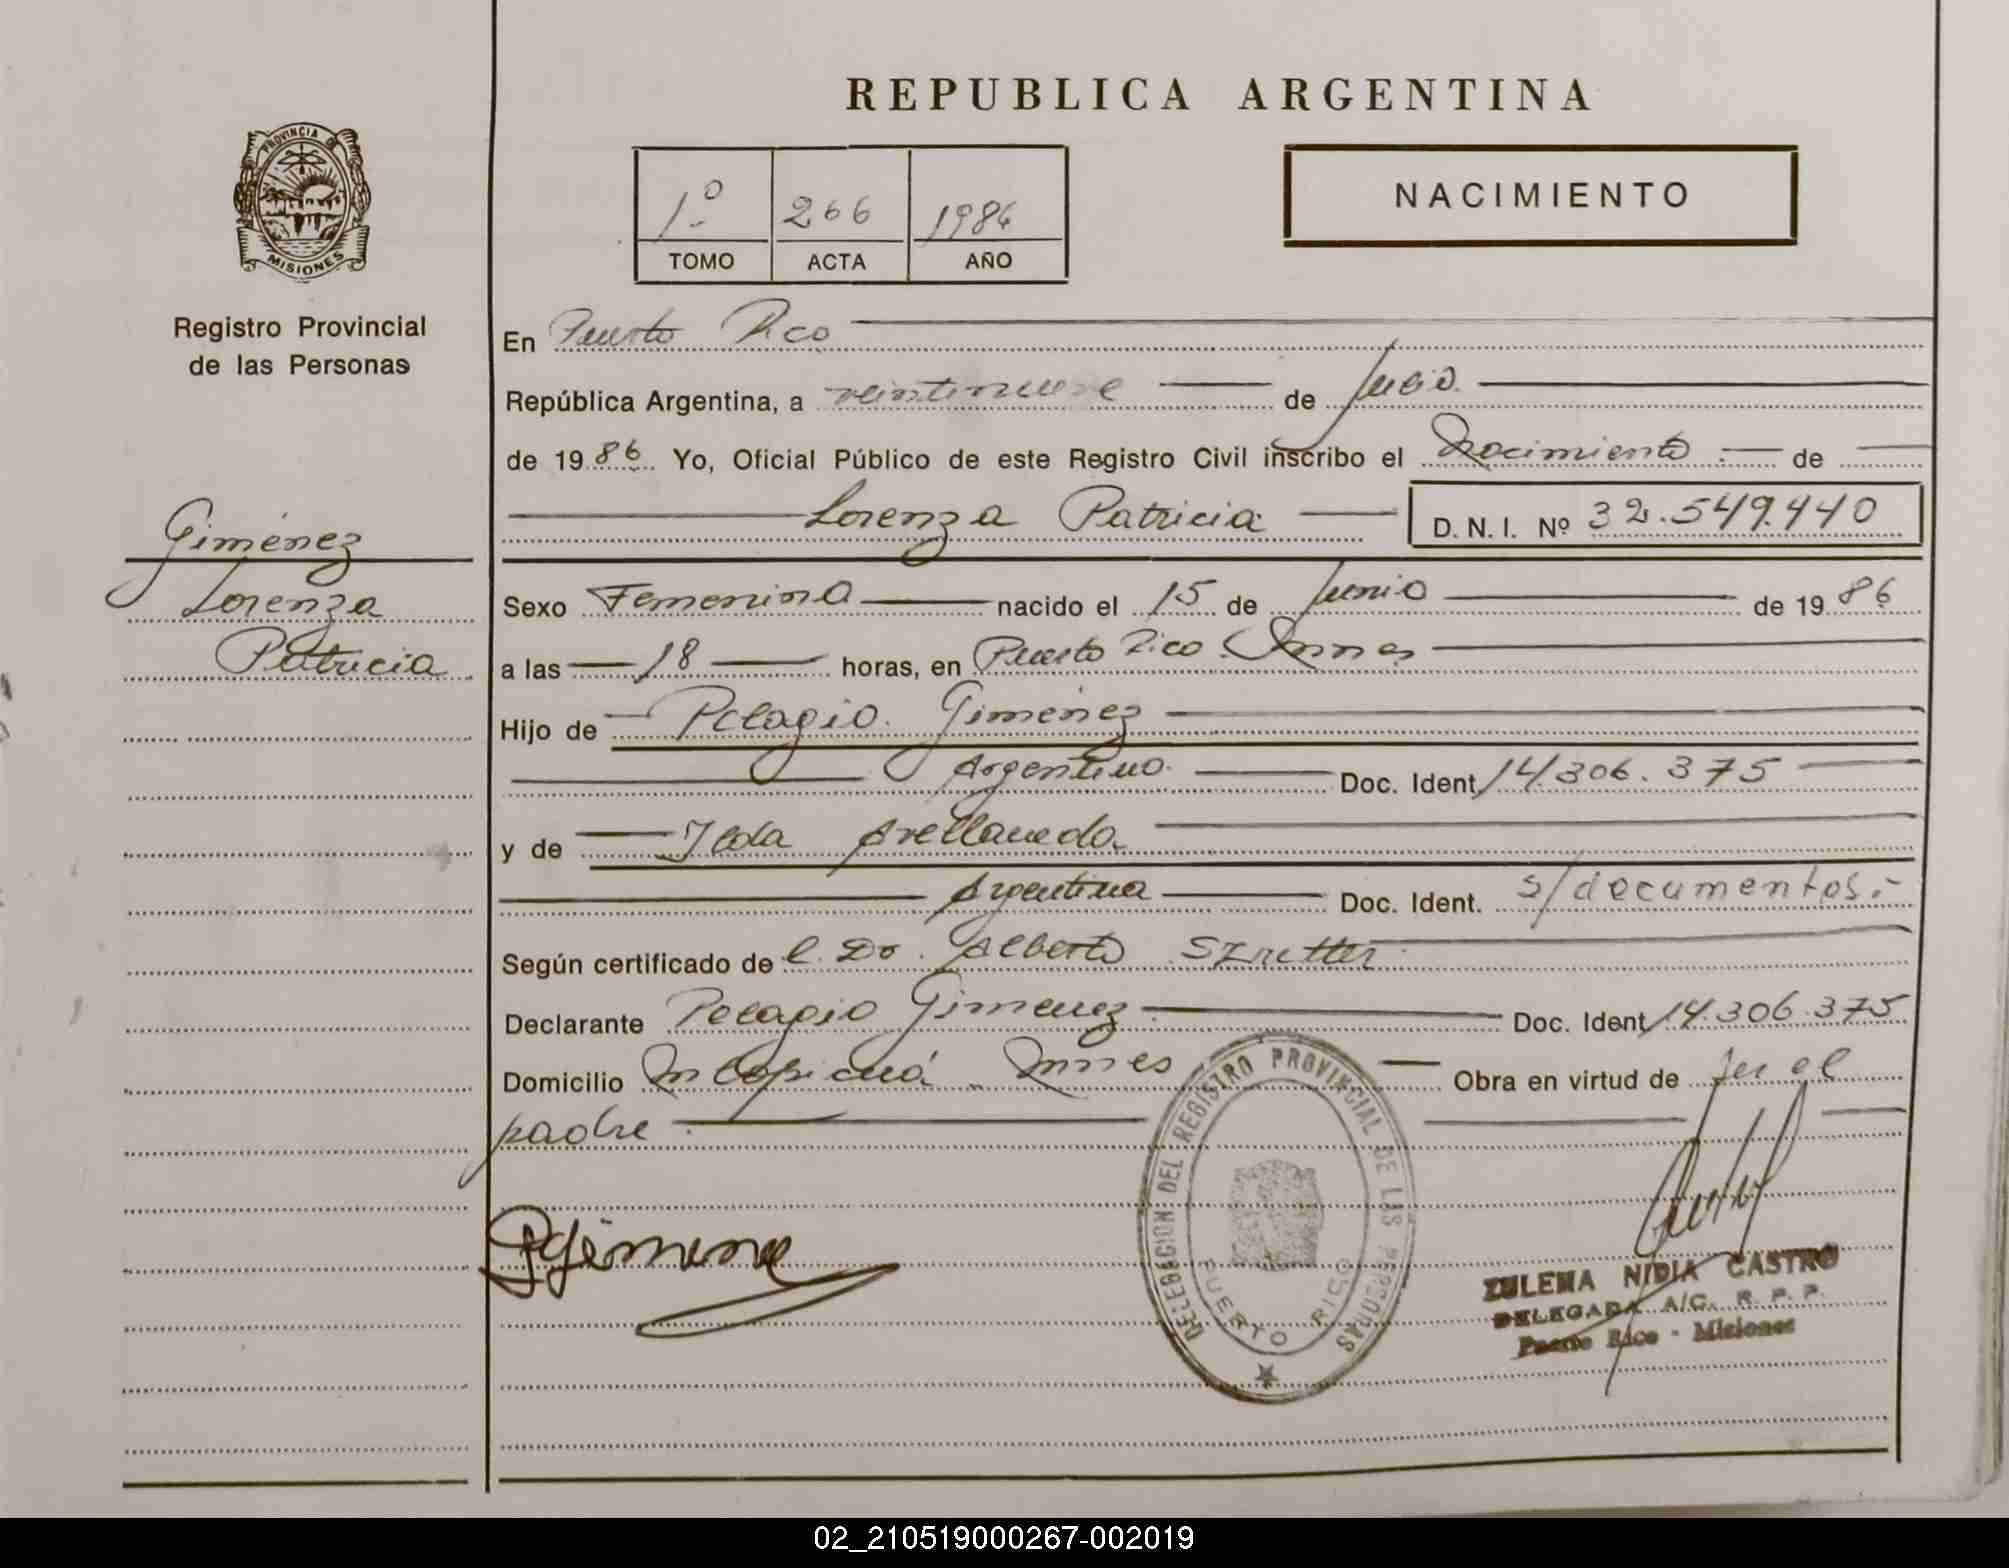 REPUBLICA ARGENTINA
PROVINCIA DE
MISIONES
Registro Provincial
de las Personas
1º 266 1986
TOMO ACTA AÑO
NACIMIENTO
En Puerto Rico
República Argentina, a veintinueve de Julio.
de 1986 Yo, Oficial Público de este Registro Civil inscribo el Nacimiento de
Lorenza Patricia D. N. I. Nº 32.549.440
Giménez
Lorenza
Patricia
Sexo Femenino nacido el 15 de Junio de 1986
a las 18 horas, en Puerto Rico
Hijo de Pelagio Giménez
Argentino. Doc. Ident 14.306.375
y de Ilda Avellaneda.
Argentina Doc. Ident. s/documentos.-
Según certificado de el Dr. Alberto Szretter
Declarante Pelagio Gimenez Doc. Ident 14.306.375
Domicilio Mnes Obra en virtud de ser el
padre.
DELEGACION DEL REGISTRO PROVINCIAL DE LAS PERSONAS
PUERTO RICO
ZULEMA NIDIA CASTRO
DELEGADA A/C. R. P. P.
Puerto Rico - Misiones
02_210519000267-002019